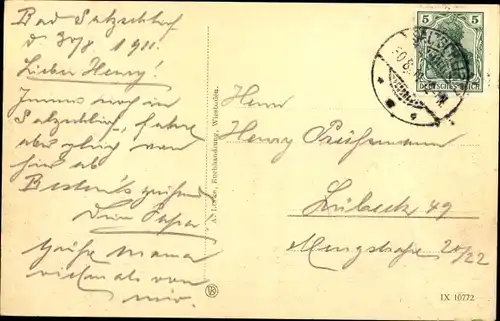 Bad Salzschlirf
d 30/8. 1911.
Lieber Henry!
Immer noch in
Salzschlirf, fahre
aber gleich von
hier ab
Bestens grüßend
Dein Papa
Grüße Mama
vielmals von
mir.
Buchhandlung, Wiesbaden.
5 5
DEUTSCHES REICH
Herrn
Henry
Lübeck 49
Mengstraße 20/22
IX 10772